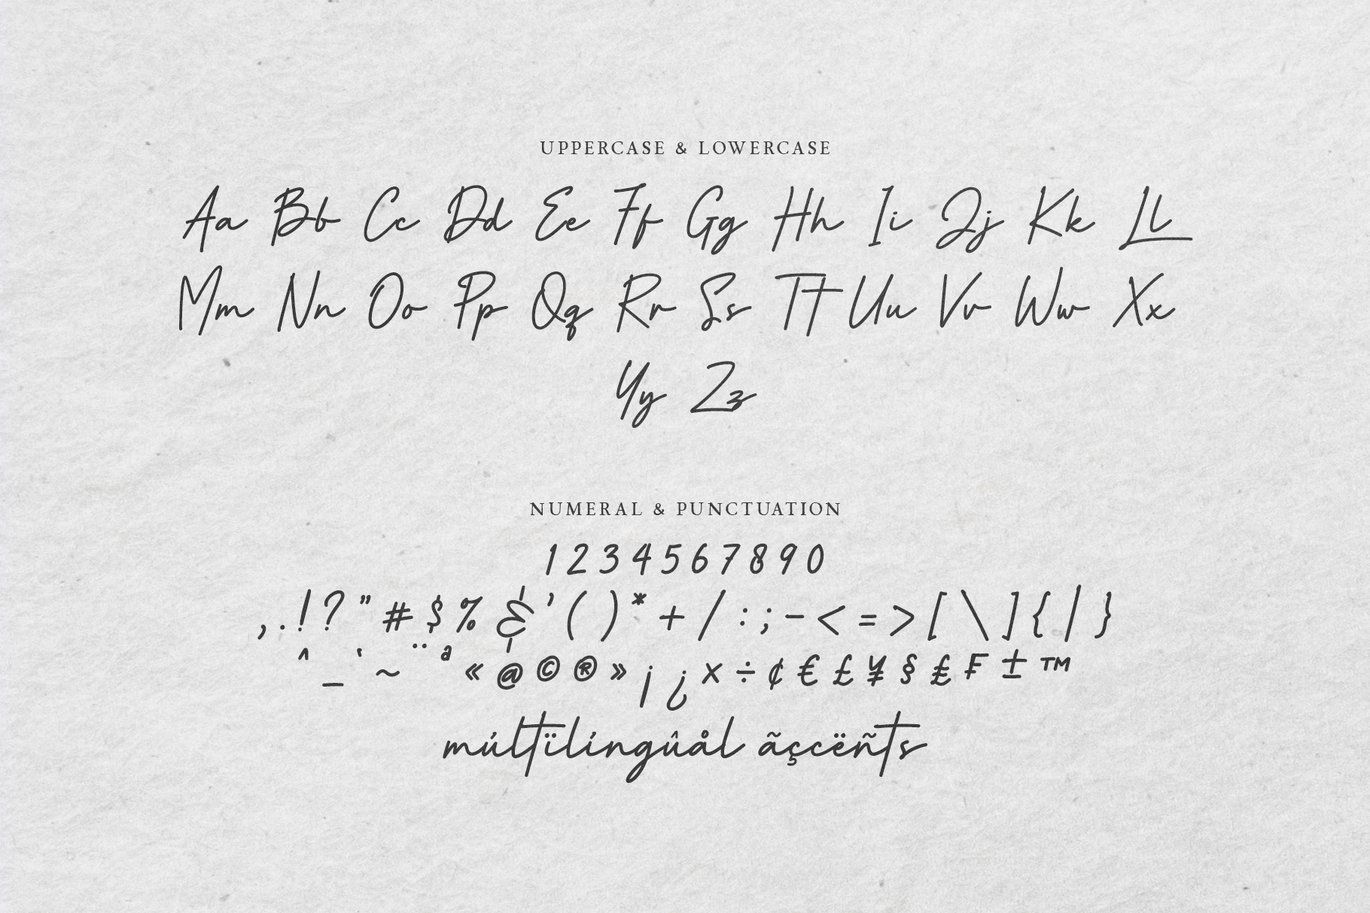 UPPERCASE & LOWERCASE
Aa Bb Cc Dd Ee Ff Gg Hh Ii Jj Kk Ll
Mm Nn Oo Pp Qq Rr Ss Tt Uu Vv Ww Xx
Yy Zz
NUMERAL & PUNCTUATION
1 2 3 4 5 6 7 8 9 0
, . ! ? " # $ % & ' ( ) * + / : ; - < = > [ \ ] { | }
^ _ ` ~ ¨ ª « @ © ® » ¡ ¿ × ÷ ¢ € £ ¥ § ₤ ₣ ± ™
múltïlíngûål ãşcëñts